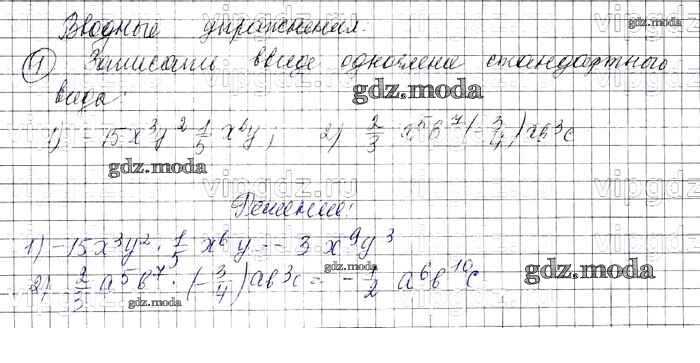 Вводные упражнения.
1 Записать ввиде одночлена стандартного
вида:
1) -15x³y² 1/5 x⁶y; 2) 2/3 a⁵b⁷(-3/4)ab³c
Решение:
1) -15x³y² · 1/5 x⁶y = -3x⁹y³
2) 2/3 a⁵b⁷ · (-3/4)ab³c = -1/2 a⁶b¹⁰c
gdz.moda
gdz.moda
gdz.moda
gdz.moda
gdz.moda
gdz.moda
vipgdz.ru
vipgdz.ru